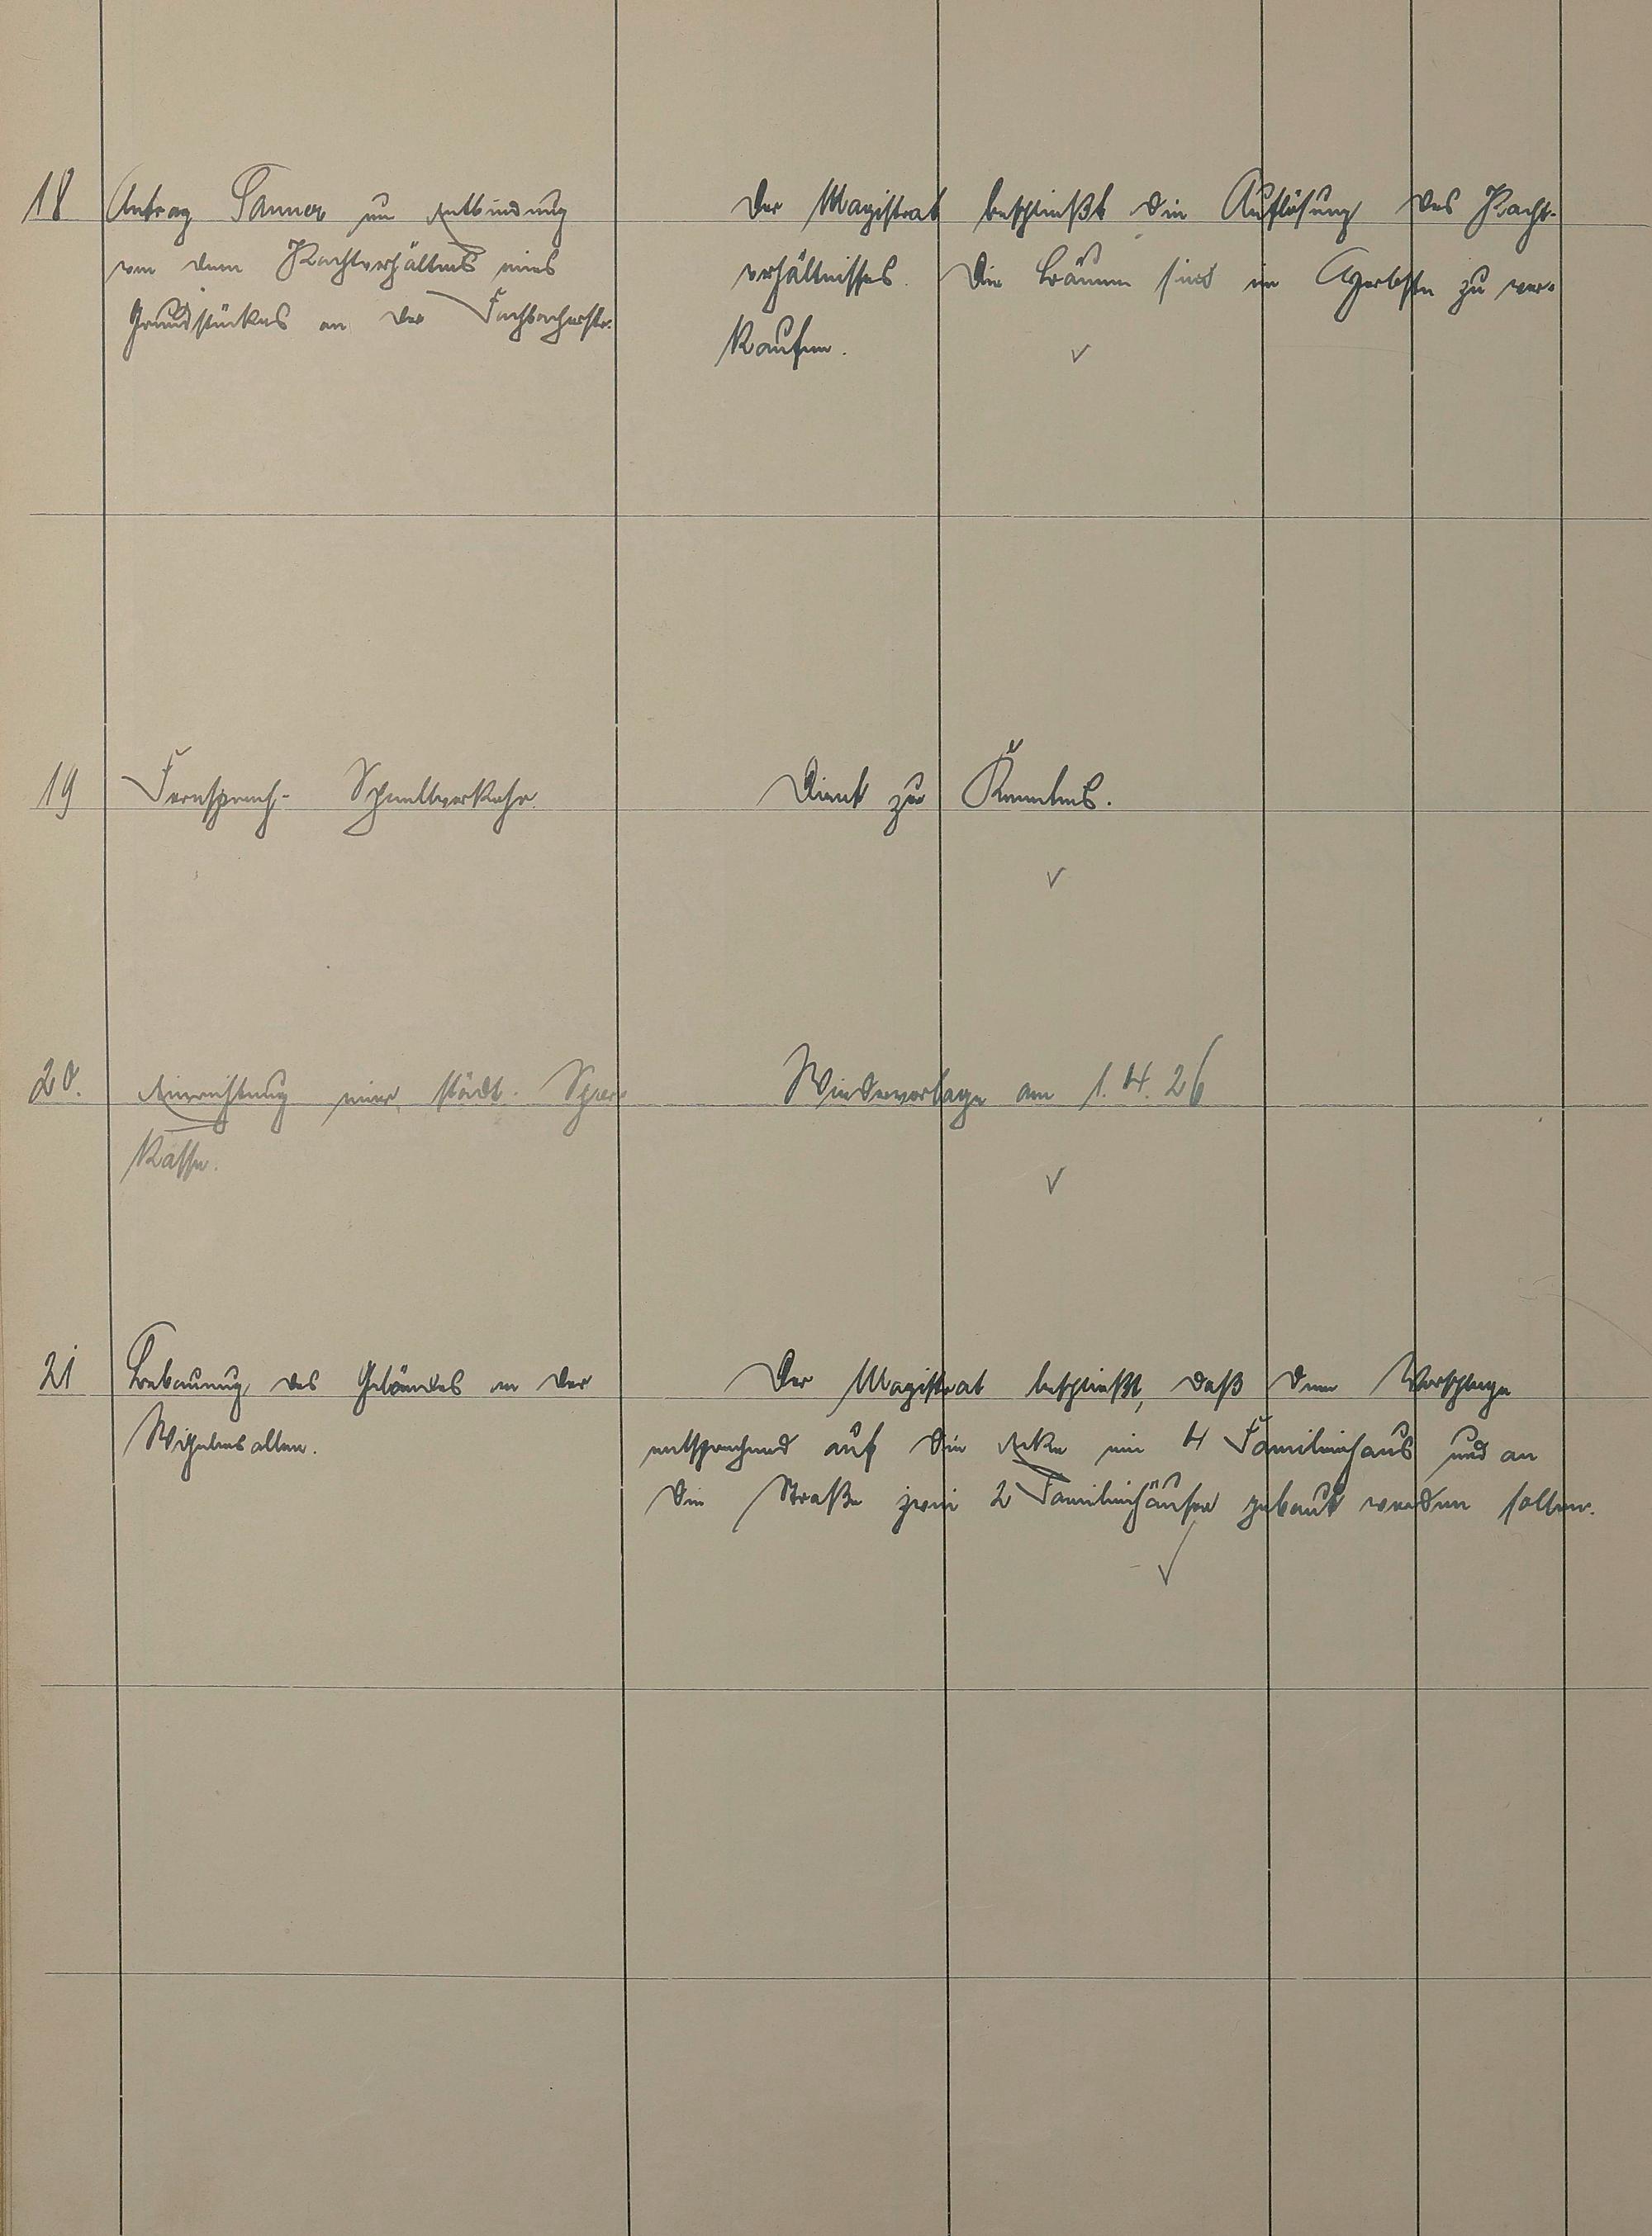 18 Antrag Tanner um Entbindung
von dem Pachtverhältnis eines
Grundstückes an der Fachbacherstr.
Der Magistrat beschließt die Auflösung des Pacht-
verhältnisses. Die Bäume sind im Herbste zu ver-
kaufen.
19 Fernsprech- Schnellverkehr.
Dient zur Kenntnis.
20. Einrichtung einer städt. Spar-
kasse.
Wiedervorlage am 1.4.26
21 Bebauung des Geländes an der
Wilhelmsallee.
Der Magistrat beschließt, daß dem Vorschlage
entsprechend auf die Ecke ein 4 Familienhaus und an
die Straße zwei 2 Familienhäuser gebaut werden sollen.